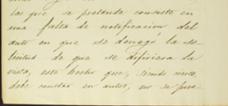 las que se pretende consiste en
una falta de notificacion del
auto en que se denegó la so-
licitud de que se difiriera la
vista, ese hecho que, siendo cierto,
debe constar en autos, no se jus-